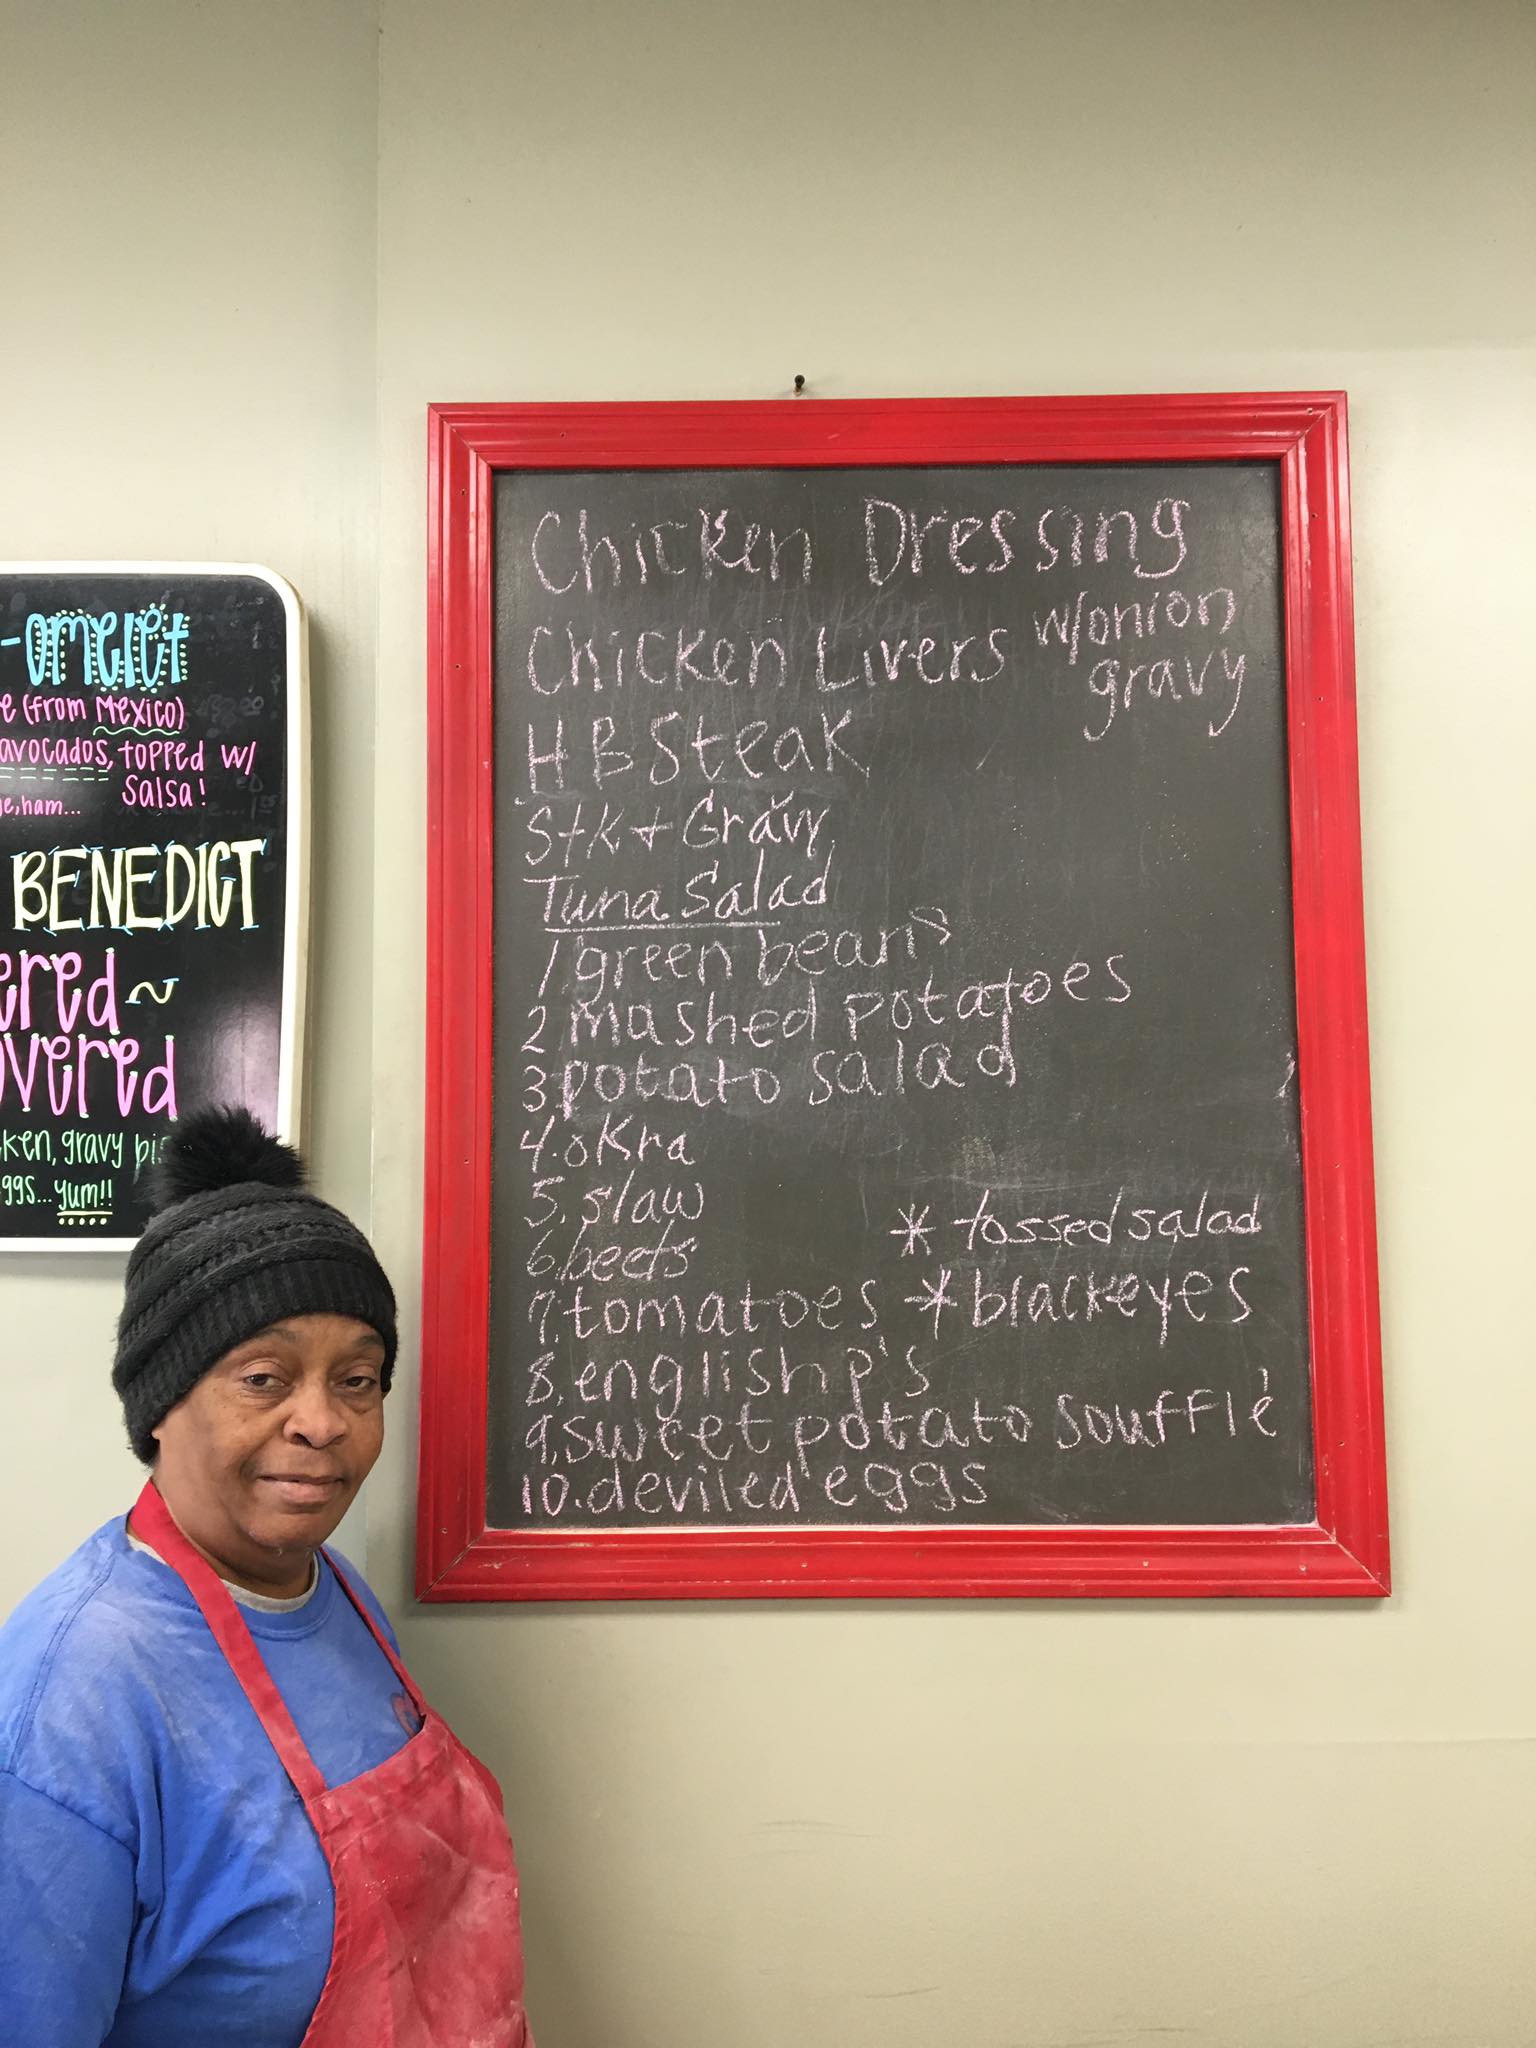 -omelet
e (from Mexico)
avocados, topped w/
salsa!
ge, ham...
BENEDICT
ered~
overed
ken, gravy bis
ggs... yum!!
Chicken Dressing
Chicken Livers w/onion
gravy
HB Steak
Stk + Gravy
Tuna Salad
1. green beans
2. mashed potatoes
3. potato salad
4. okra
5. slaw
6. beets
* tossed salad
7. tomatoes * blackeyes
8. english p's
9. sweet potato soufflé
10. deviled eggs